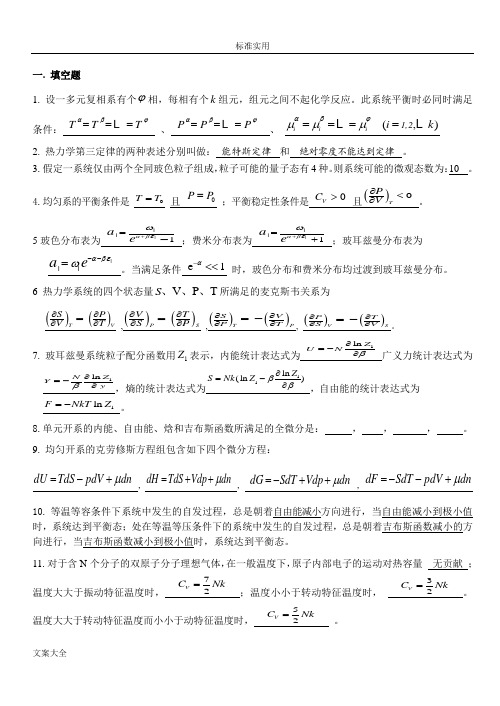 标准实用
一. 填空题
1. 设一多元复相系有个φ相，每相有个k组元，组元之间不起化学反应。此系统平衡时必同时满足
条件： T^α = T^β = L = T^φ 、 P^α = P^β = L = P^φ 、 μ_i^α = μ_i^β = L = μ_i^φ (i = 1,2,L k)
2. 热力学第三定律的两种表述分别叫做： 能特斯定律 和 绝对零度不能达到定律 。
3. 假定一系统仅由两个全同玻色粒子组成，粒子可能的量子态有4种。则系统可能的微观态数为：10 。
4.均匀系的平衡条件是 T = T₀ 且 P = P₀ ；平衡稳定性条件是 C_V > 0 且 (∂P/∂V)_T < 0 。
5玻色分布表为 a_l = ω_l/(e^(α+βε_l) − 1) ；费米分布表为 a_l = ω_l/(e^(α+βε_l) + 1) ；玻耳兹曼分布表为
a_l = ω_l e^(−α−βε_l) 。当满足条件 e^(−α) << 1 时，玻色分布和费米分布均过渡到玻耳兹曼分布。
6 热力学系统的四个状态量S、V、P、T所满足的麦克斯韦关系为
(∂S/∂V)_T = (∂P/∂T)_V , (∂V/∂S)_P = (∂T/∂P)_S , (∂S/∂P)_T = −(∂V/∂T)_P , (∂P/∂S)_V = −(∂T/∂V)_S 。
7. 玻耳兹曼系统粒子配分函数用Z₁表示，内能统计表达式为 U = −N ∂ln Z₁/∂β 广义力统计表达式为
Y = −(N/β) ∂ln Z₁/∂y ，熵的统计表达式为 S = Nk(ln Z₁ − β ∂ln Z₁/∂β) ，自由能的统计表达式为
F = −NkT ln Z₁ 。
8.单元开系的内能、自由能、焓和吉布斯函数所满足的全微分是： ， ， ， 。
9. 均匀开系的克劳修斯方程组包含如下四个微分方程：
dU = TdS − pdV + μdn , dH = TdS + Vdp + μdn , dG = −SdT + Vdp + μdn , dF = −SdT − pdV + μdn
10. 等温等容条件下系统中发生的自发过程，总是朝着自由能减小方向进行，当自由能减小到极小值
时，系统达到平衡态；处在等温等压条件下的系统中发生的自发过程，总是朝着吉布斯函数减小的方
向进行，当吉布斯函数减小到极小值时，系统达到平衡态。
11.对于含N个分子的双原子分子理想气体，在一般温度下，原子内部电子的运动对热容量 无贡献 ；
温度大大于振动特征温度时， C_V = 7/2 Nk ；温度小小于转动特征温度时， C_V = 3/2 Nk 。
温度大大于转动特征温度而小小于动特征温度时， C_V = 5/2 Nk 。
文案大全